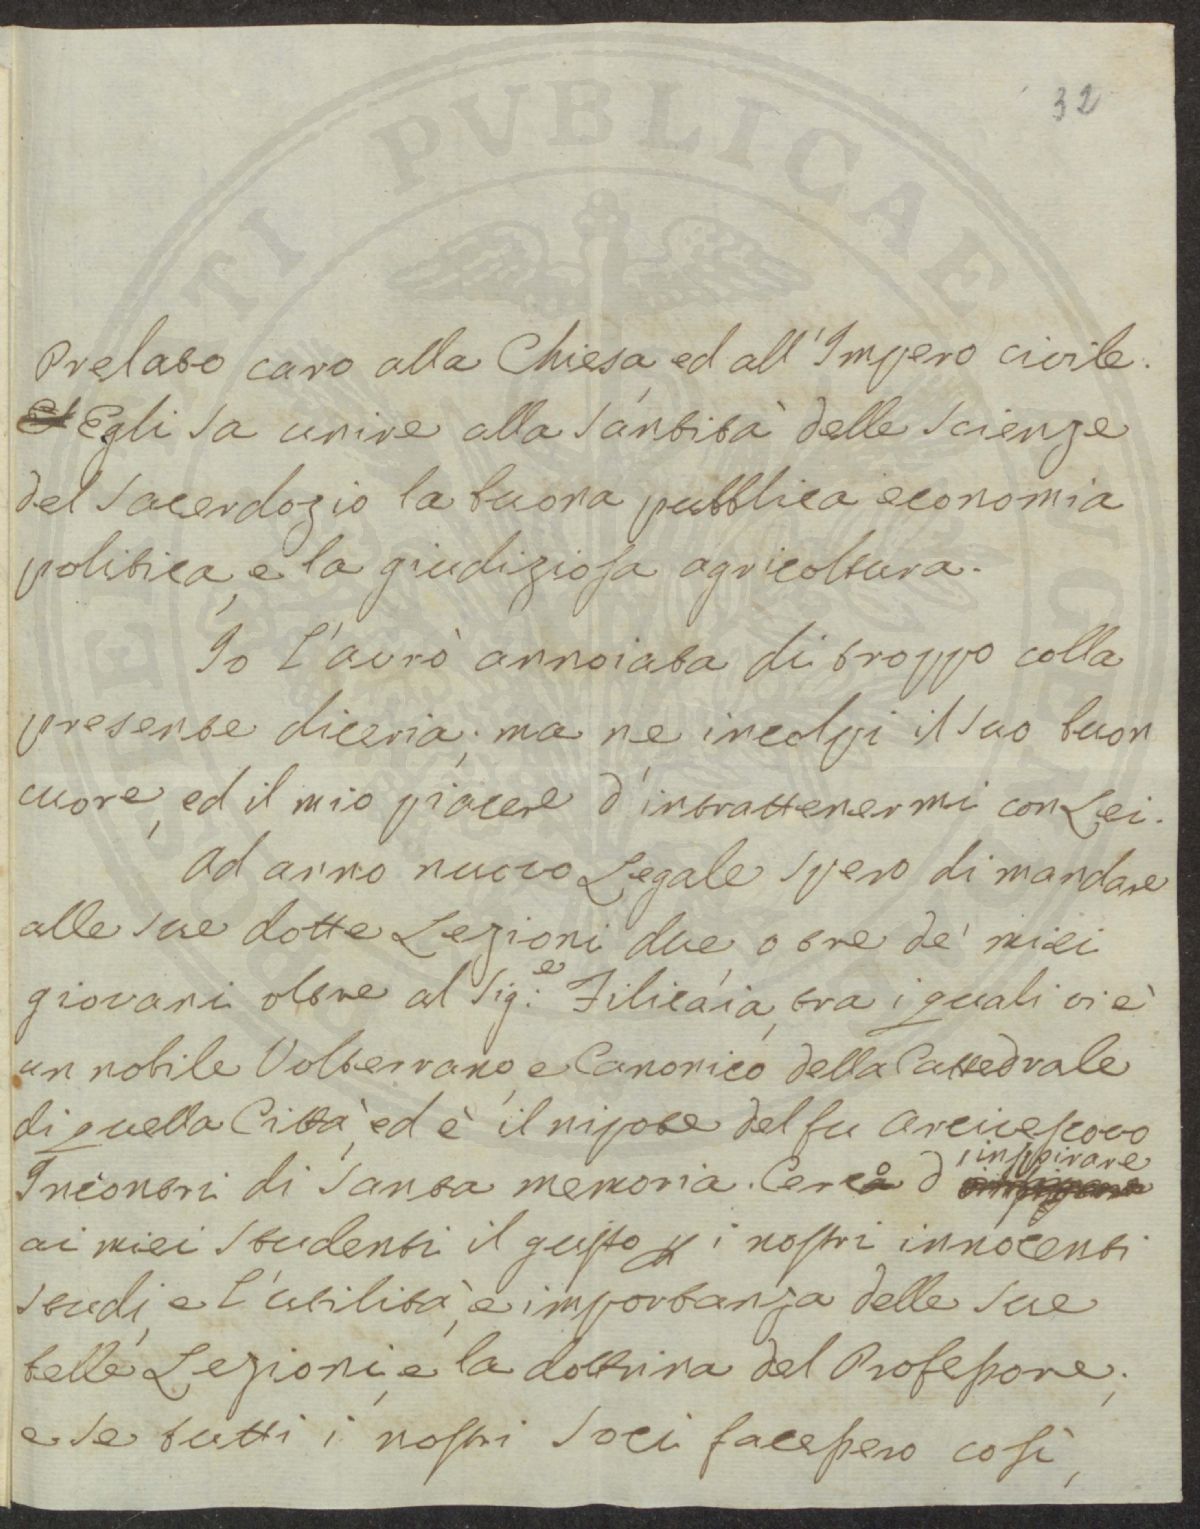 32
Prelato caro alla Chiesa, ed all'Impero civile.
Egli sa unire alla santità delle scienze
del sacerdozio la buona pubblica economia
politica, e la giudiziosa agricoltura.
Io l'avrò annoiata di troppo colla
presente diceria; ma ne incolpi il suo buon
cuore, ed il mio piacere d'intrattenermi con Lei.
Ad anno nuovo Legale spero di mandare
alle sue dotte Lezioni due, o tre de' miei
giovani oltre al Sig.e Filicaia, tra i quali vi è
un nobile Volterrano, e Canonico della Cattedrale
di quella Città, ed è il nipote del fu Arcivescovo
Incontri di santa memoria. Cerco d'inspirare
ai miei studenti il gusto p i nostri innocenti
studi, e l'utilità, e importanza delle sue
belle Lezioni, e la dottrina del Professore;
e se tutti i nostri soci facessero così,
PVBLICAE